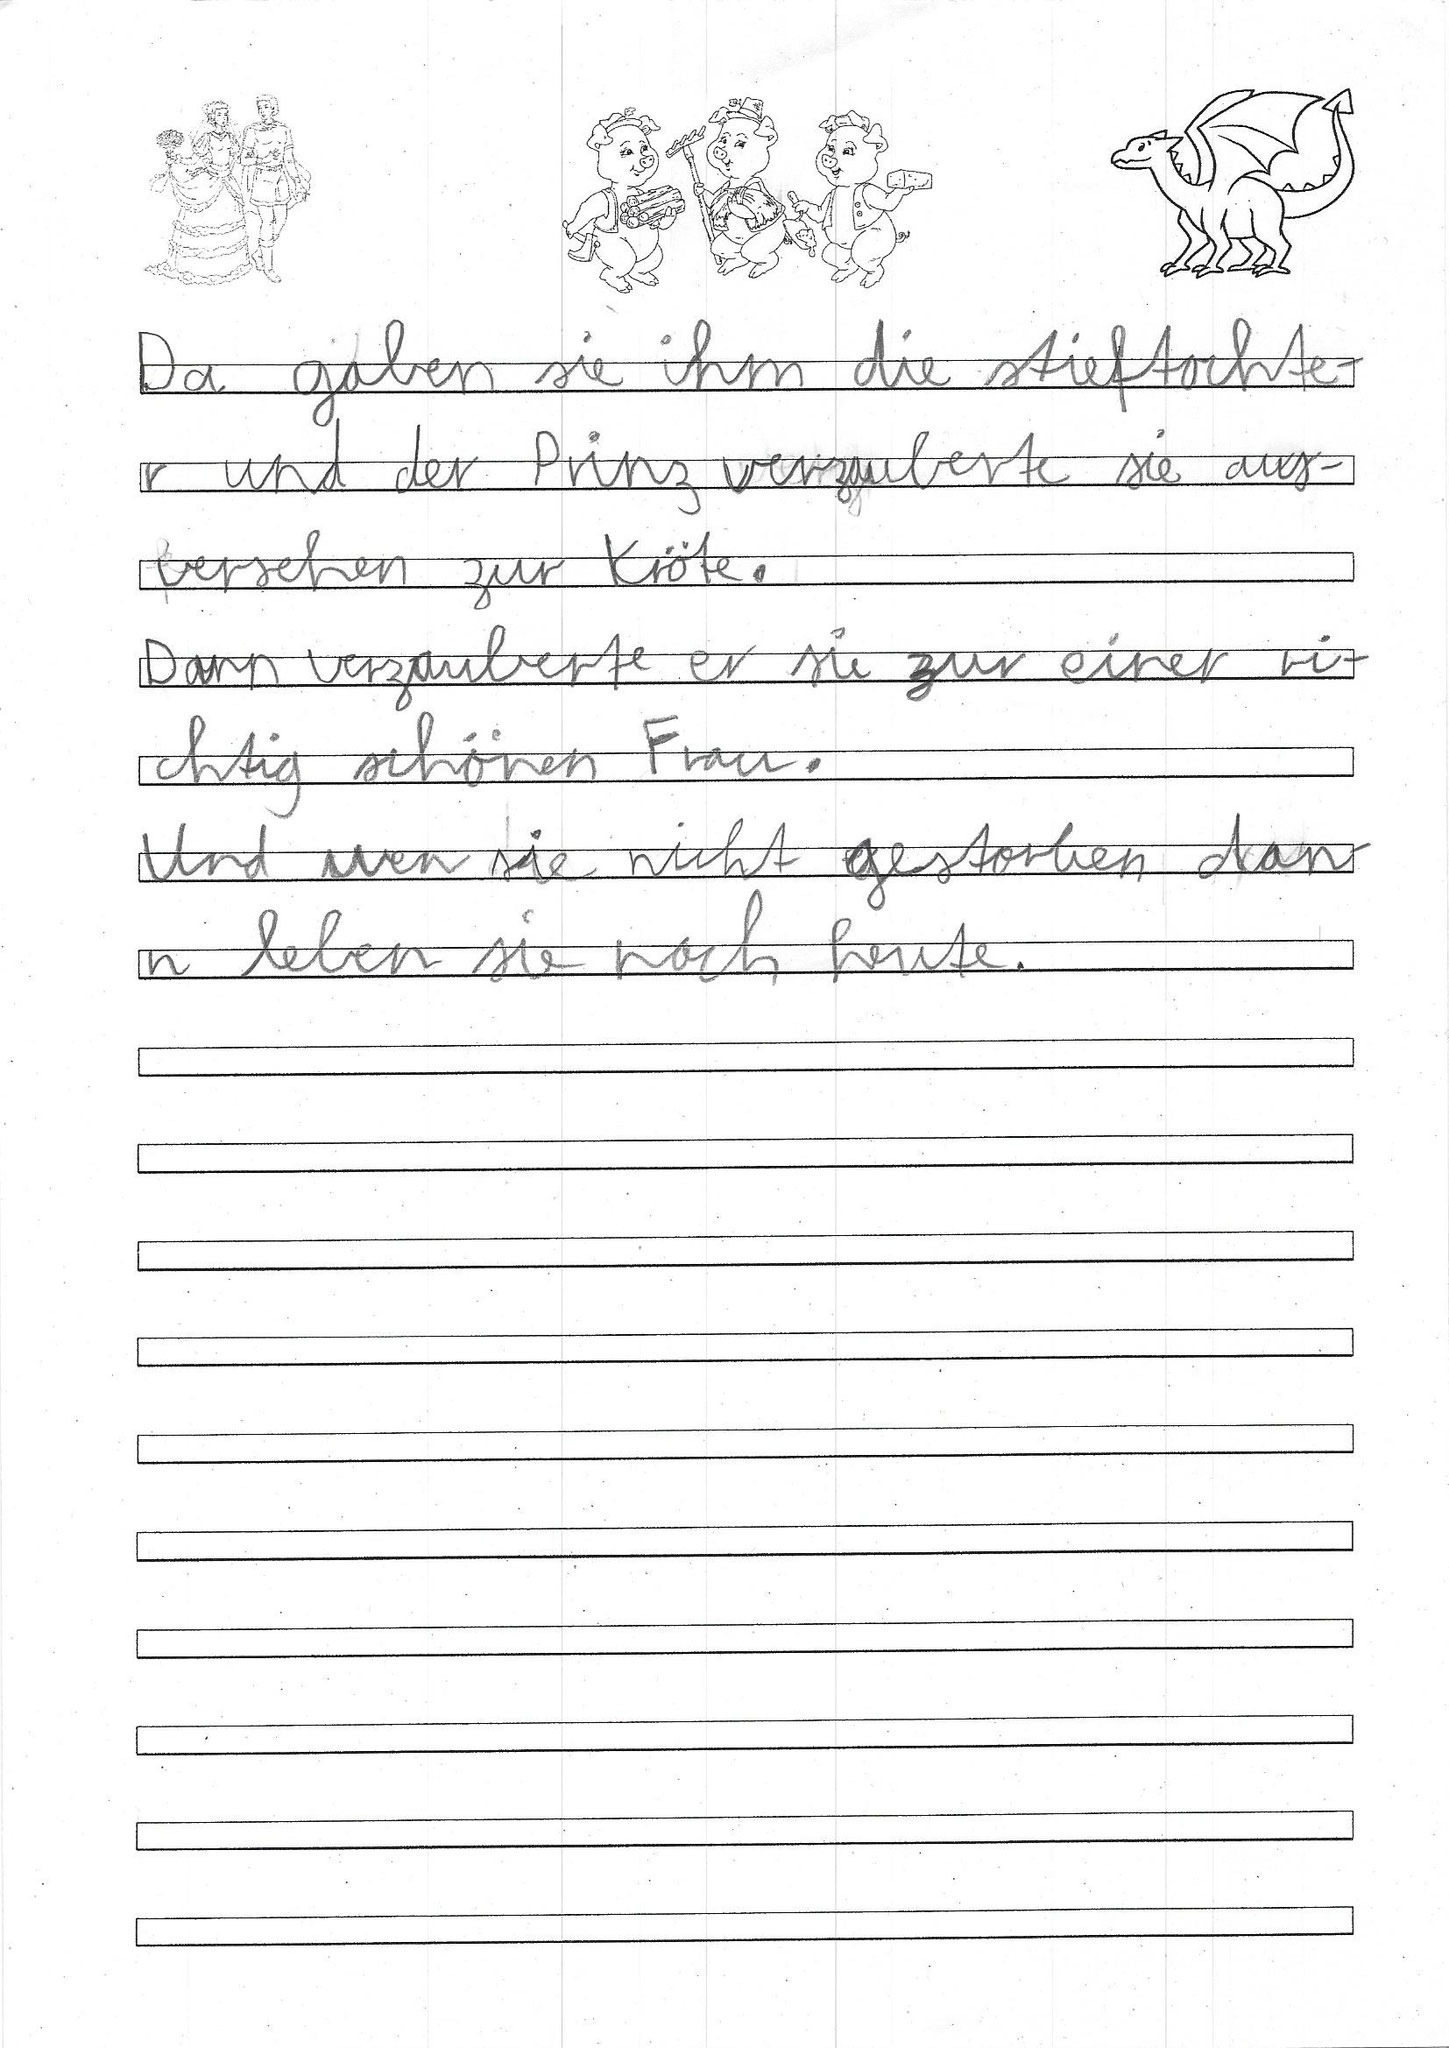 Da gaben sie ihm die stieftochte-
r und der Prinz verzauberte sie aus-
versehen zur Kröte.
Dann verzauberte er sie zur einer ri-
chtig schönen Frau.
Und wen sie nicht gestorben dan-
n leben sie noch heute.